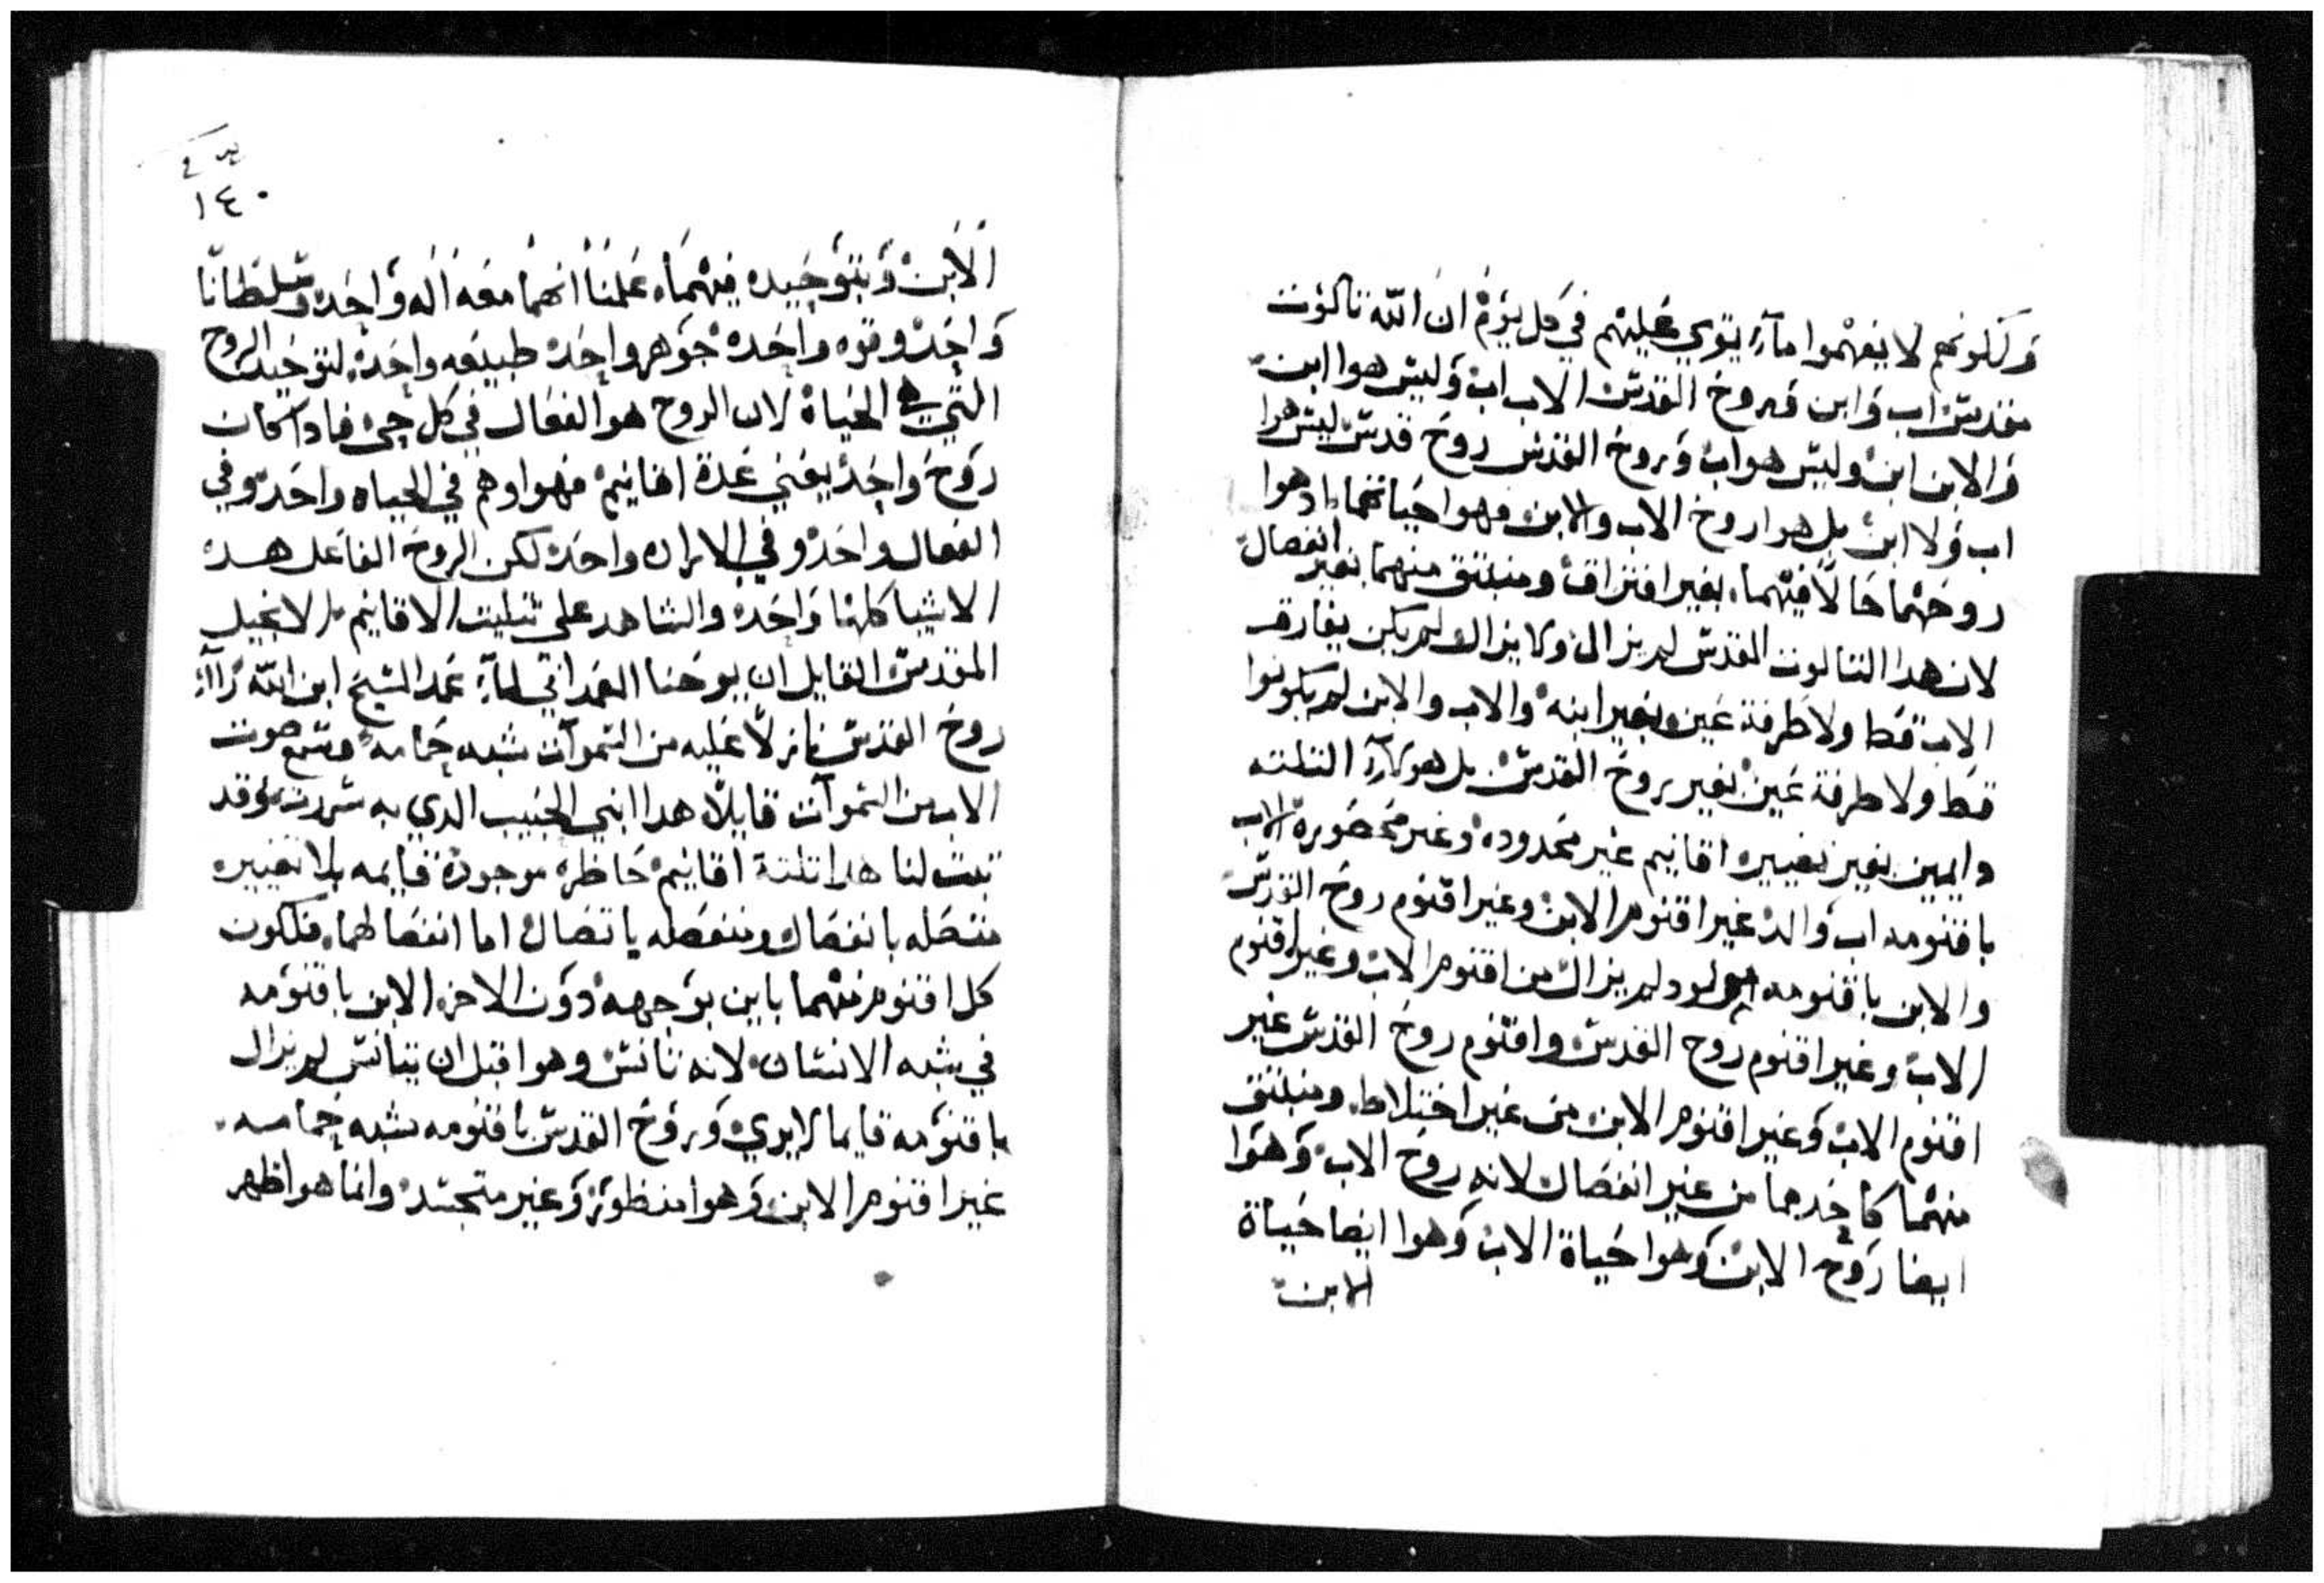 وكلونهم لا يفهموا ما يقوي عليهم في كل يوم ان الله تالوت
مقدس اب وابن وروح القدس الاب اب وليس هوا ابن
والابن ابن وليس هو اب وروح القدس روح قدس ليس هوا
اب ولا ابن بل هوا روح الاب والابن وهوا حياتهما اد هوا
روحهما حالا فيهما بغير افتراق ومنبتق منهما بغير انفصال
لان هدا التالوت المقدس لم يزال ولا يزال ولم يكن يفارق
الاب قط ولا طرفة عين وبغير ابنه والاب والابن لم يكونوا
قط ولا طرفة عين بغير روح القدس بل هولآء التلته
دايمين بغير تغييره اقانيم غير محدوده وغير محصوره الاب
باقنومه اب والد غير اقنوم الابن وغير اقنوم روح القدس
والابن باقنومه مولود لم يزال من اقنوم الاب وغير اقنوم
الاب وغير اقنوم روح القدس واقنوم روح القدس غير
اقنوم الاب وغير اقنوم الابن من غير اختلاط ومنبتق
منهما كاحدهما من غير انفصال لانه روح الاب وهوا
ايضا روح الابن وهوا حياة الاب وهوا ايضا حياة
الابن
١٤٠
الابن وبتوحيده فيهما علمنا انهما معه اله واحد وسلطانا
واحد وقوه واحده جوهر واحد طبيعه واحده لتوحيد الروح
التي هي الحياة لان الروح هو الفعال في كل حي فادا كان
روح واحد يعني عدة اقانيم فهوا وهم في الحياه واحد وفي
الفعال واحد وفي الاراده واحد لكن الروح الفاعل هده
الاشيا كلها واحده والشاهد على تتليت الاقانيم الانجيل
المقدس القايل ان يوحنا المعمداني لمآ عمد المسيح ابن الله رآآ
روح القدس نازلا عليه من السموآت شبه حمامه وسمع صوت
الاب من السموآت قايلا هدا ابني الحبيب الدي به سررت وقد
تبت لنا هدا تلتة اقانيم حاظره موجودة قايمه بلا تغييره
متصله بانفصال ومنفصله باتصال اما انفصالهما فلكون
كل اقنوم منهما باين بوجهه دون الاخر الابن باقنومه
في شبه الانسان لانه تانس وهوا قبل ان يتانس لم يزال
باقنومه قايما لا يري وروح القدس باقنومه بشبه حمامه
غير اقنوم الابن وهوا منظور وغير متجسد وانما هو اظهر